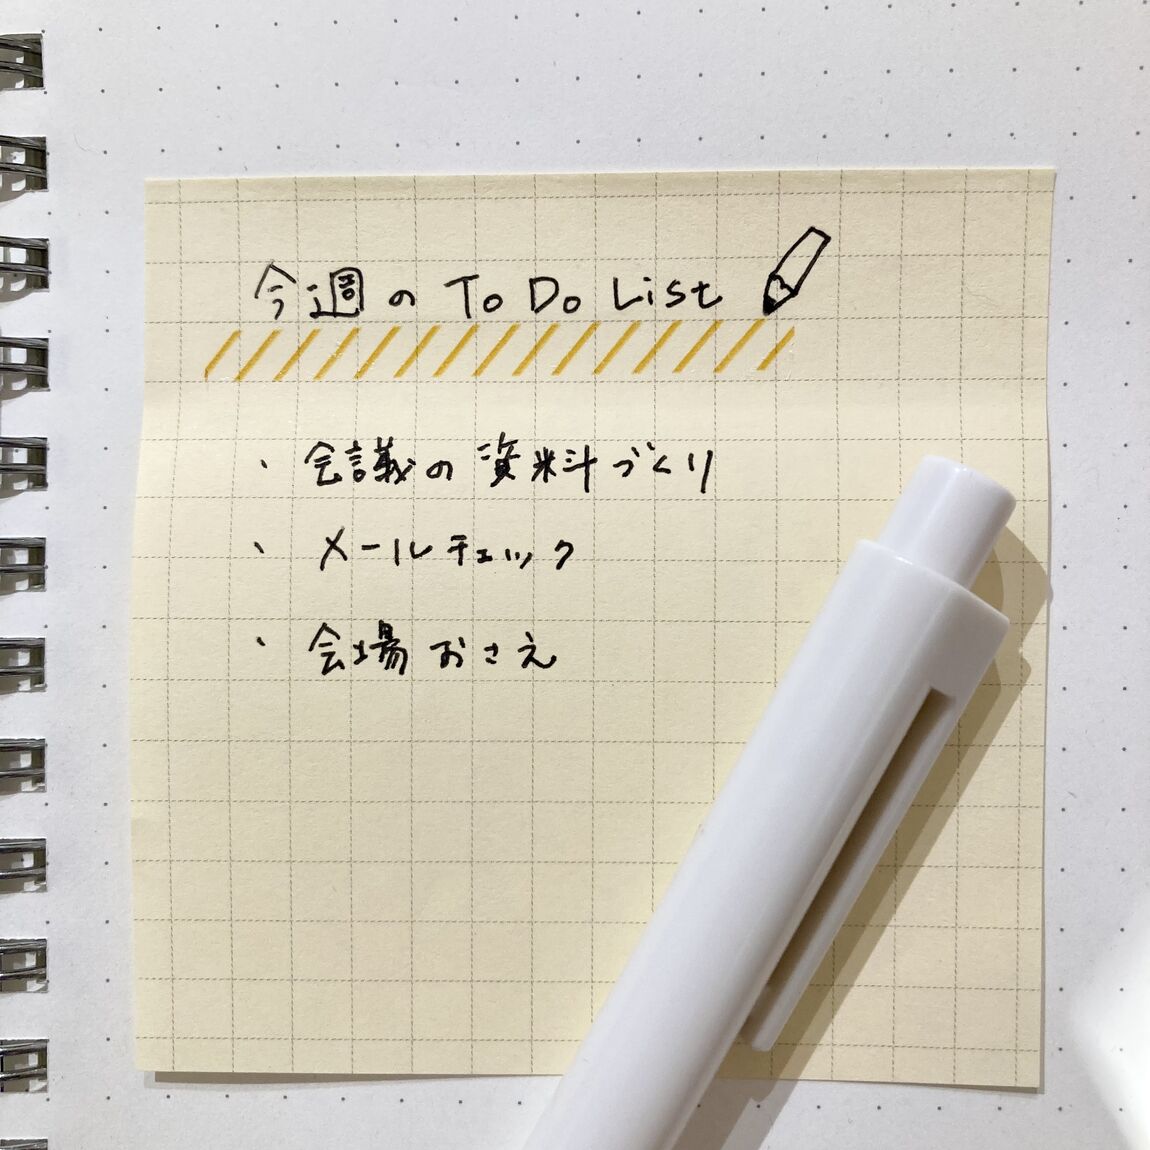 今週の To Do List
・会議の資料づくり
・メールチェック
・会場おさえ